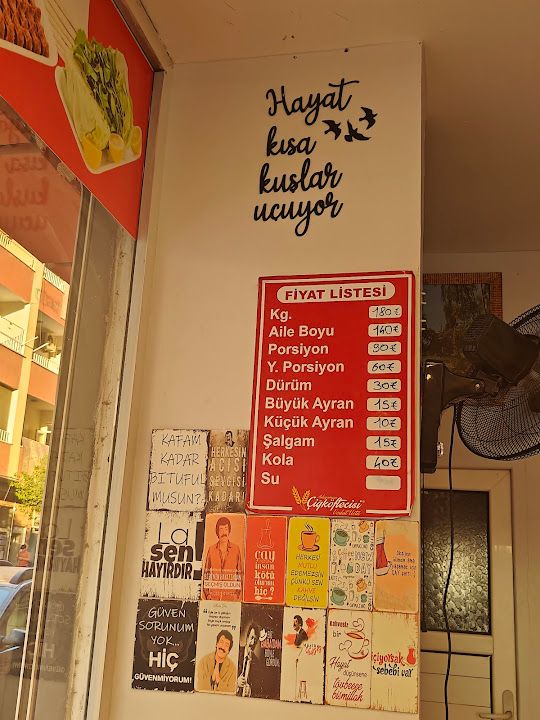 Hayat
kısa
kuşlar
uçuyor
FİYAT LİSTESİ
Kg. 180₺
Aile Boyu 140₺
Porsiyon 90₺
Y. Porsiyon 60₺
Dürüm 30₺
Büyük Ayran 15₺
Küçük Ayran 10₺
Şalgam 15₺
Kola 40₺
Su
Çiğköftecisi
KAFAM
KADAR
BI TUFUL
MUSUN?
HERKESİN
ACISI
SEVGİSİ
KADAR
La
sen!
HAYIRDIR
çay
kötü
hiç ?
HERKESİ
MUTLU
EDEMEZSİN
ÇÜNKÜ SEN
KAHVE
DEĞİLSİN
GÜVEN
SORUNUM
YOK...
HİÇ
GÜVENMİYORUM!
Kahvesiz
bir
Hayat
düşünsene
bismillah
çiyorsak
sebebi var